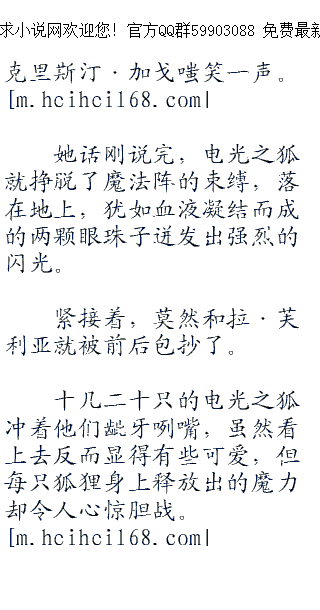 求小说网欢迎您! 官方QQ群59903088 免费最新
克里斯汀·加戈嗤笑一声。
[m.hcihci168.com|
她话刚说完，电光之狐
就挣脱了魔法阵的束缚，落
在地上，犹如血液凝结而成
的两颗眼珠子迸发出强烈的
闪光。
紧接着，莫然和拉·芙
利亚就被前后包抄了。
十几二十只的电光之狐
冲着他们龇牙咧嘴，虽然看
上去反而显得有些可爱，但
每只狐狸身上释放出的魔力
却令人心惊胆战。
[m.hcihci168.com|